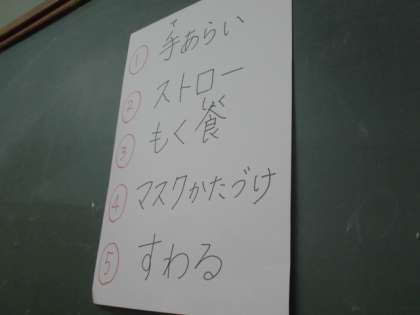 ① 手あらい
② ストロー
③ もく食
④ マスクかたづけ
⑤ すわる